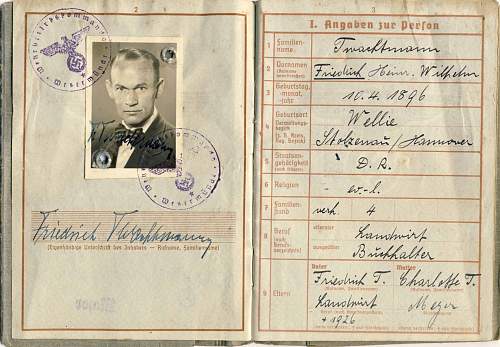 2
Wehrbezirkskommando
Wesermünde
Friedrich Twachtmann
(Eigenhändige Unterschrift des Inhabers — Rufname, Familienname)
Major
3
I. Angaben zur Person
1 Familienname Twachtmann
2 Vornamen (Rufname unterstreichen) Friedrich Heinr. Wilhelm
3 Geburtstag, -monat, -jahr 10.4.1896
4 Geburtsort Wellie
Verwaltungsbezirk (z. B. Kreis, Reg.-Bezirk) Stolzenau/Hannover
5 Staatsangehörigkeit D.R.
6 Religion ev.-l.
7 Familienstand verh. 4
8 Beruf (nach Berufsverzeichnis) erlernter Landwirt
ausgeübter Buchhalter
9 Eltern
Vater Mutter
Friedrich T. Charlotte T.
Landwirt Meyer
+ 1926